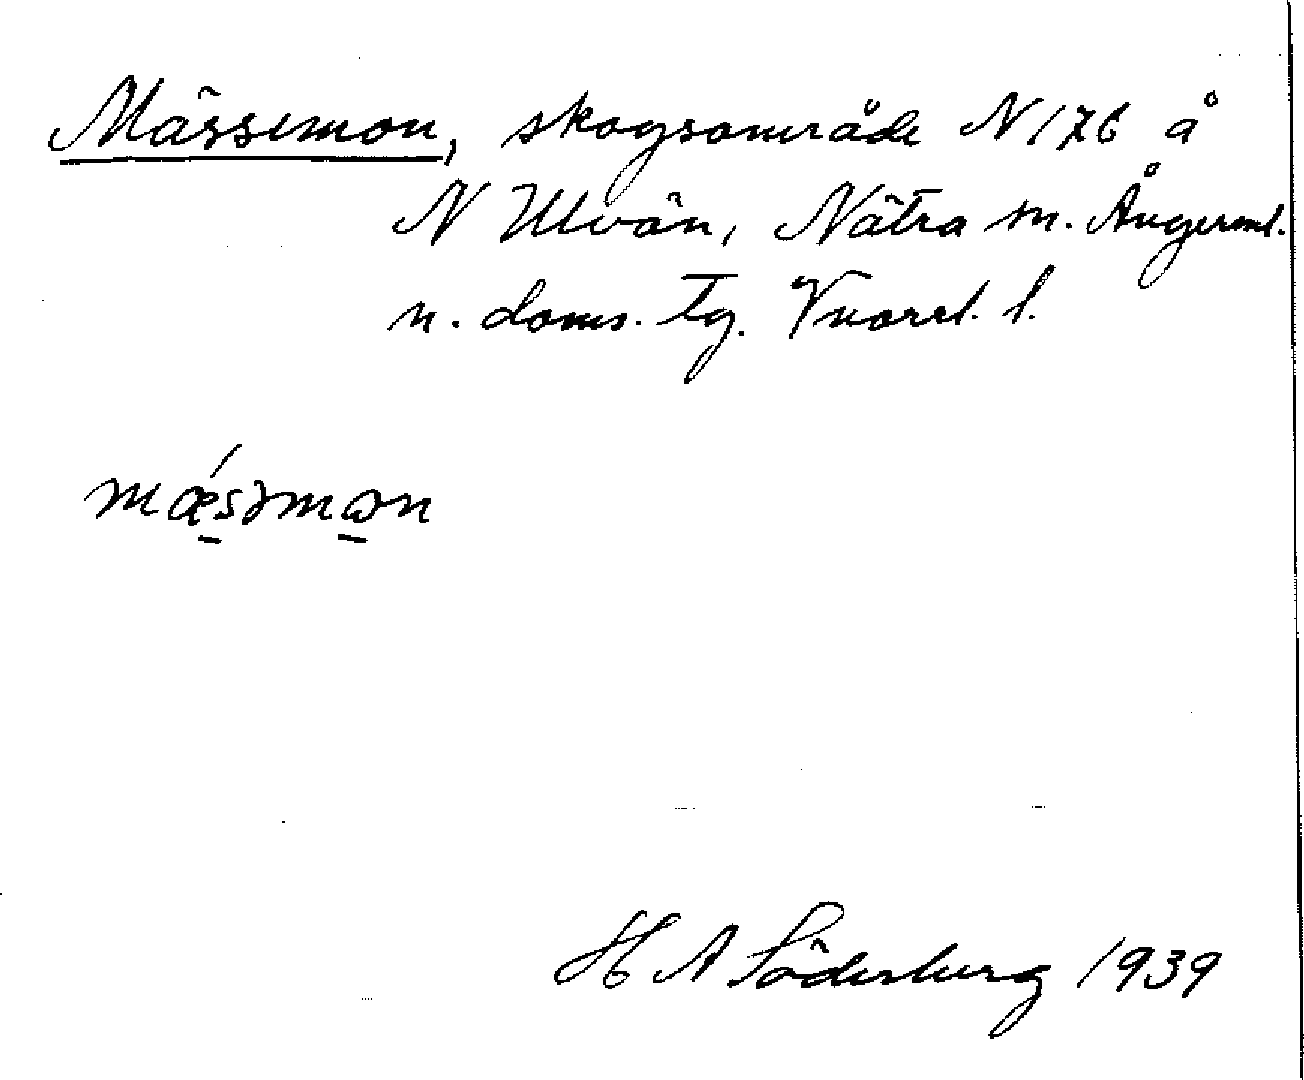 Mässemon, skogsområde N 176 å
N Ulvön, Nätra sn. Ångerml.
n. doms. tg. Vnorrl. l.
mǽsəmɷn
H A Söderberg 1939